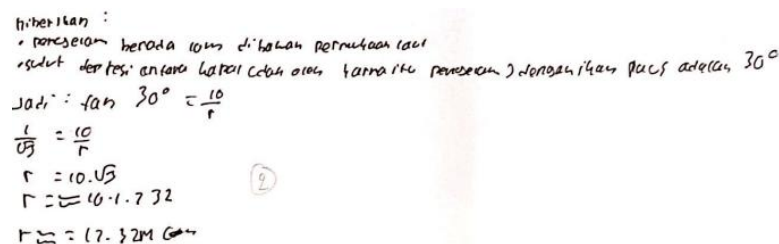 Diberikan :
• penyelam berada 10m dibawah permukaan laut
• sudut depresi antara kapal (dan oleh karna itu penyelam) dengan ikan paus adalah 30°
Jadi : tan 30° = 10/r
1/√3 = 10/r
r = 10.√3
r = ≈ 10.1.732
r ≈ = 17.32M
2